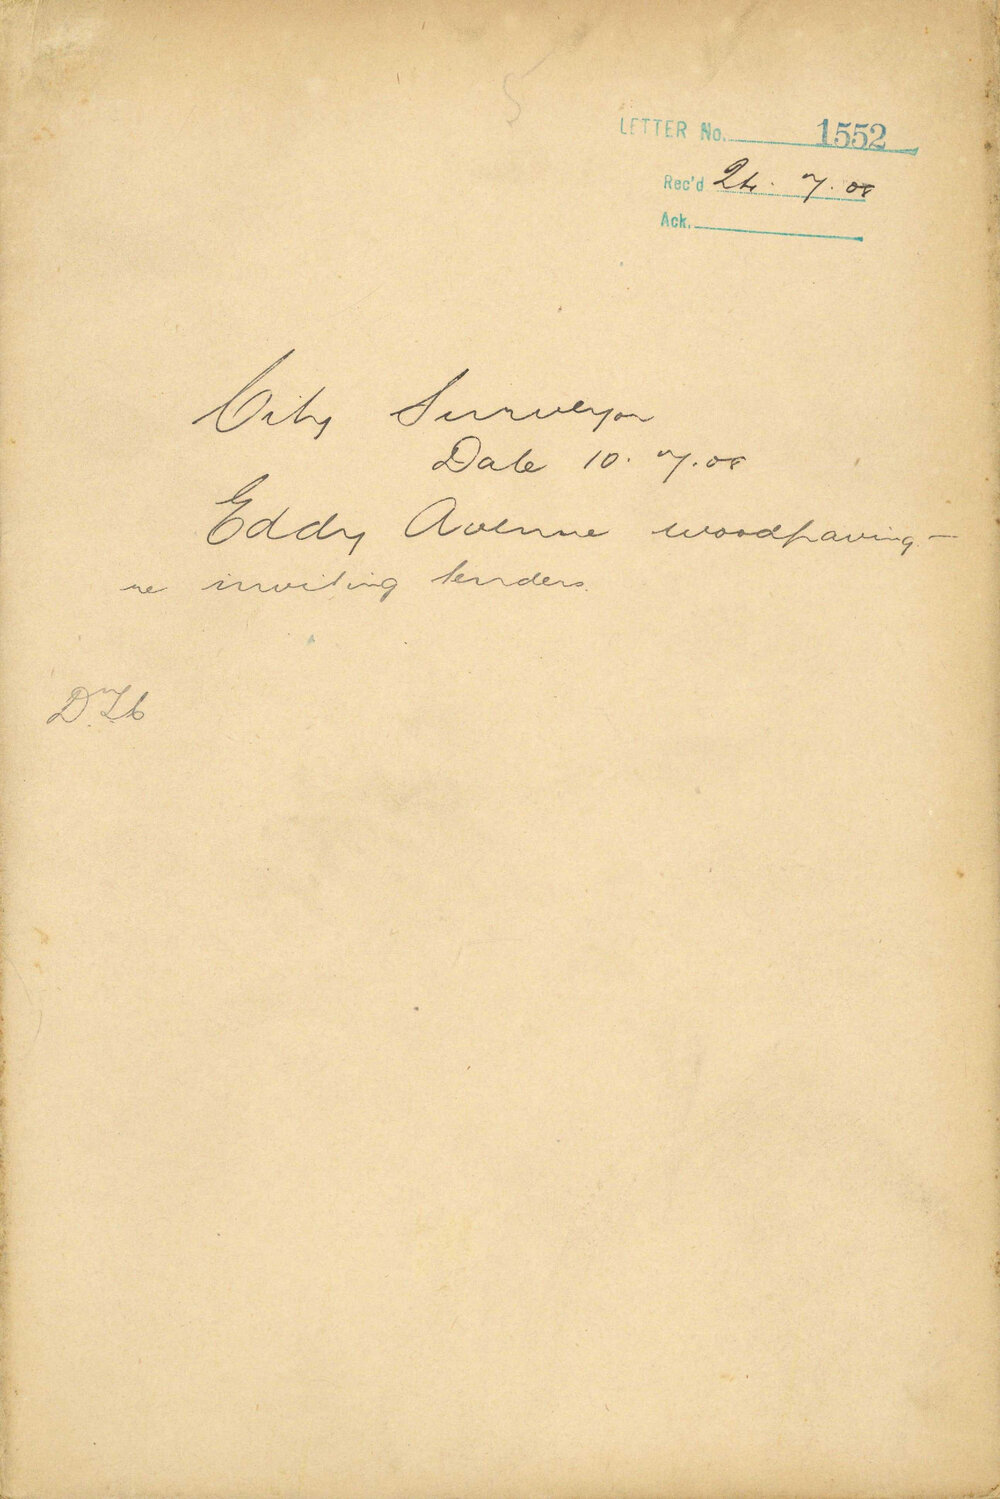 LETTER No. 1552
Rec'd 24. 7. 08
Ack.
City Surveyor
Date 10. 7. 08
Eddy Avenue woodpaving -
re inviting tenders.